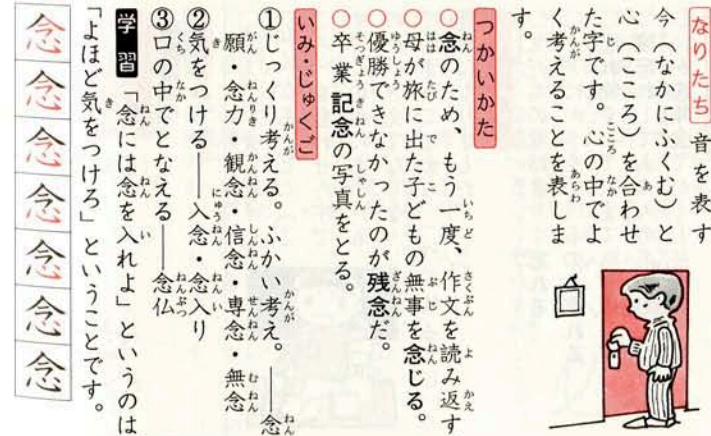 なりたち 音を表す
今（なかにふくむ）と
心（こころ）を合わせ
た字です。心の中でよ
く考えることを表しま
す。
つかいかた
○念のため、もう一度、作文を読み返す
○母が旅に出た子どもの無事を念じる。
○優勝できなかったのが残念だ。
○卒業記念の写真をとる。
いみ・じゅくご
①じっくり考える。ふかい考え。――念
願・念力・観念・信念・専念・無念
②気をつける――入念・念入り
③口の中でとなえる――念仏
学習「念には念を入れよ」というのは
「よほど気をつけろ」ということです。
念念念念念念念